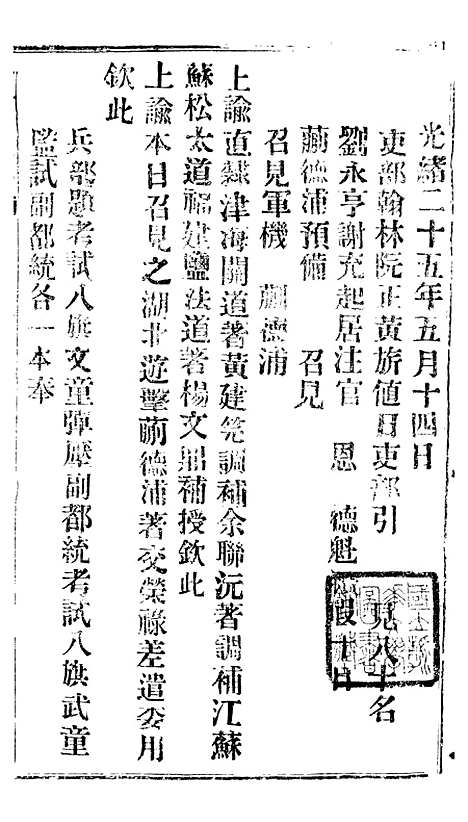 光緒二十五年五月十四日
吏部翰林院正黃旂值日吏部引 見八十名
劉永亨謝充起居注官 恩 德魁 假十日
蒯德浦預備 召見
召見軍機 蒯德浦
上諭直隸津海關道著黃建筦調補余聯沅著調補江蘇
蘇松太道福建鹽法道著楊文鼎補授欽此
上諭本日召見之湖北遊擊蒯德浦著交榮祿差遣委用
欽此
兵部題考試八旗文童彈壓副都統考試八旗武童
監試副都統各一本奉